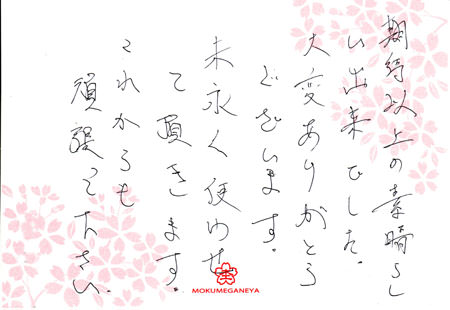 期待以上の素晴らし
い出来でした。
大変ありがとう
ございます。
末永く使わせ
て頂きます。
これからも
頑張って下さい。
MOKUMEGANEYA